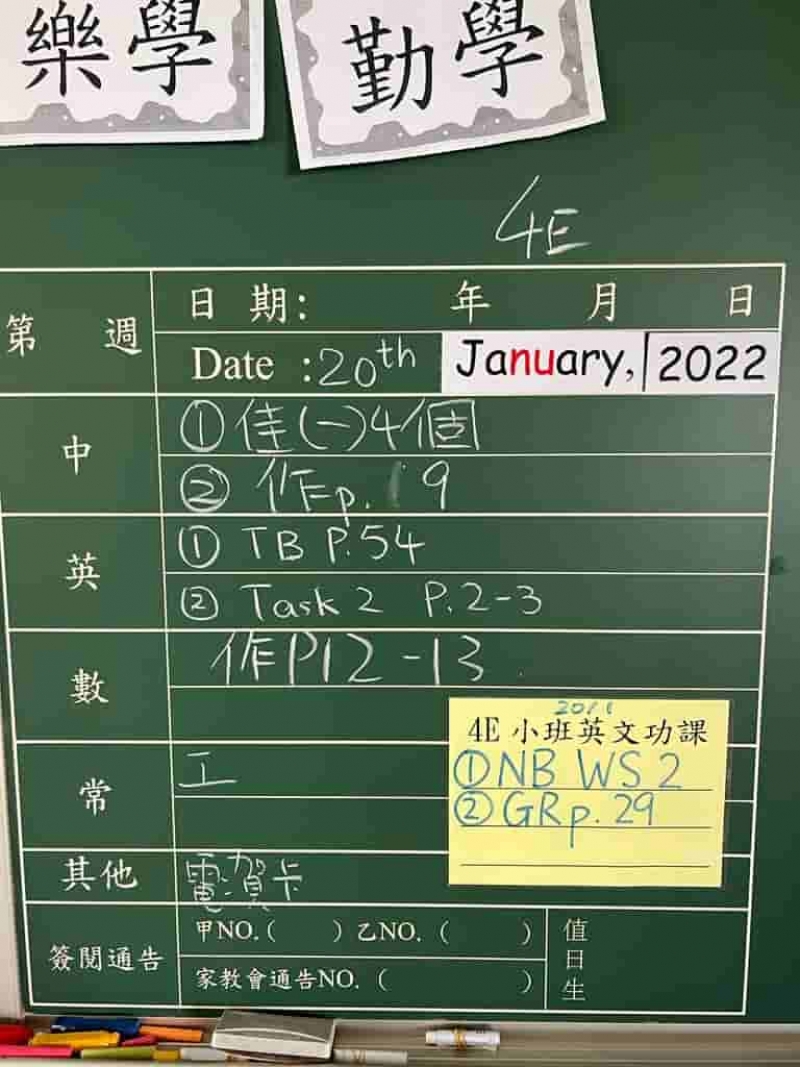 樂學
勤學
4E
第 週
日 期: 年 月 日
Date : 20th January, 2022
中
① 佳(一)4個
② 作p.19
英
① TB P.54
② Task 2 P.2-3
數
作P12-13
常
工
其他
電:賀卡
20/1
4E 小班英文功課
① NB WS 2
② GR p. 29
簽閱通告
甲NO.( ) 乙NO. ( )
家教會通告NO. ( )
值日生